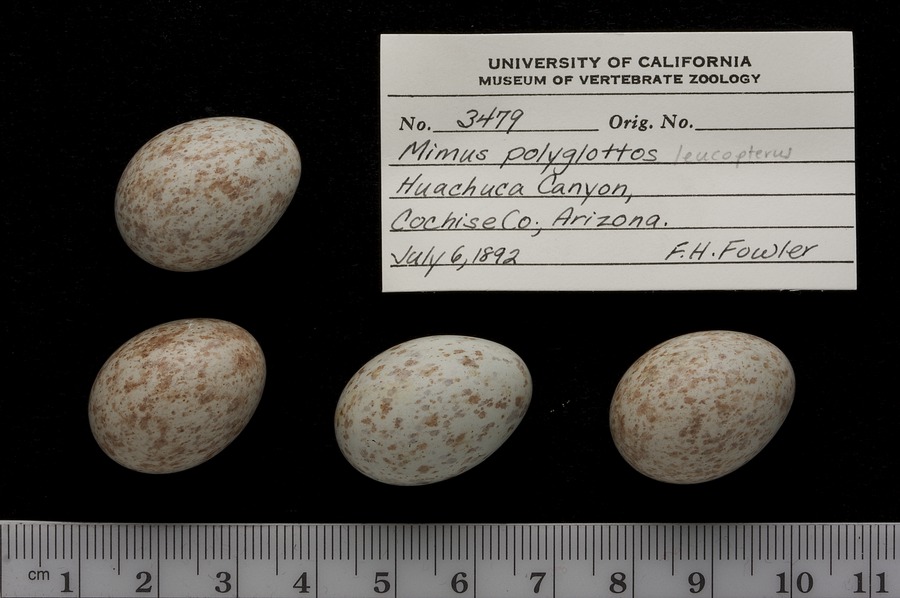 UNIVERSITY OF CALIFORNIA
MUSEUM OF VERTEBRATE ZOOLOGY
No. 3479 Orig. No.
Mimus polyglottos leucopterus
Huachuca Canyon,
Cochise Co., Arizona.
July 6, 1892 F.H. Fowler
cm 1 2 3 4 5 6 7 8 9 10 11